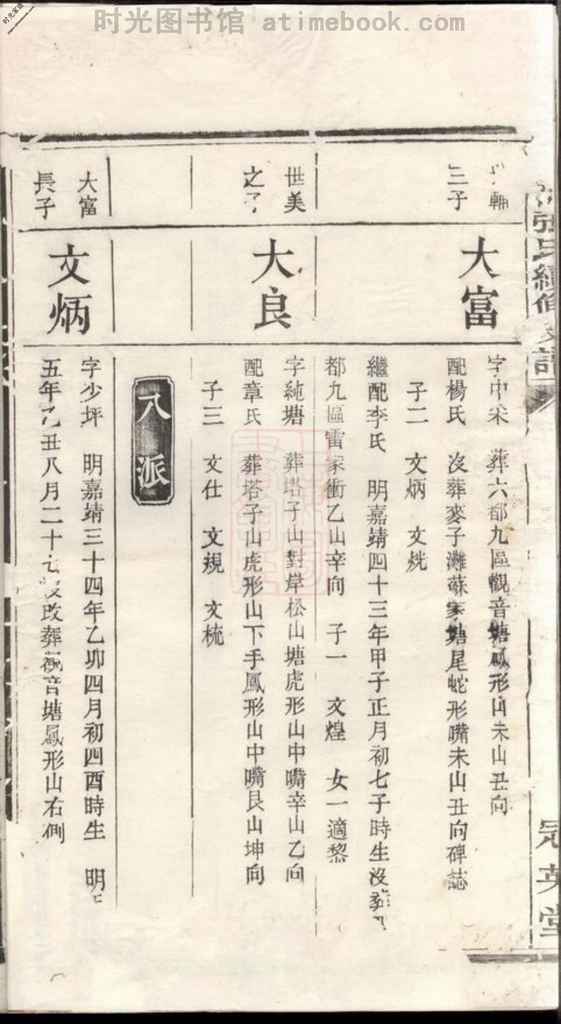 时光图书馆 atimebook.com
张氏續修支譜
冠英堂
輔
三子
大富
字中采 葬六都九區觀音塘鳳形山未山丑向
配楊氏 沒葬麥子灘蘇家塘尾蛇形嘴未山丑向碑誌
子二 文炳 文烑
繼配李氏 明嘉靖四十三年甲子正月初七子時生沒葬
都九區雷家衝乙山辛向 子一 文煌 女一適黎
世美
之子
大良
字純塘 葬塔子山對岸松山塘虎形山中嘴辛山乙向
配章氏 葬塔子山虎形山下手鳳形山中嘴艮山坤向
子三 文仕 文規 文梳
八派
大富
長子
文炳
字少坪 明嘉靖三十四年乙卯四月初四酉時生 明
五年乙丑八月二十七沒改葬觀音塘鳳形山右側